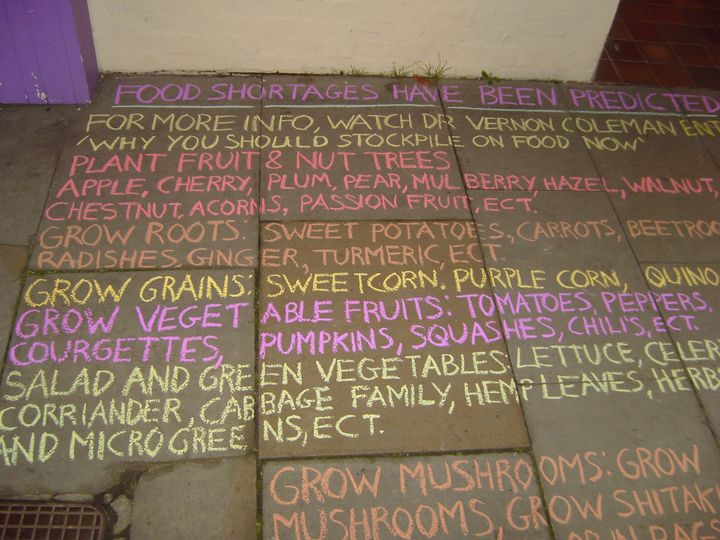 FOOD SHORTAGES HAVE BEEN PREDICTED
FOR MORE INFO, WATCH DR VERNON COLEMAN ENT
'WHY YOU SHOULD STOCKPILE ON FOOD NOW'
PLANT FRUIT & NUT TREES
APPLE, CHERRY, PLUM, PEAR, MULBERRY, HAZEL, WALNUT,
CHESTNUT, ACORNS, PASSION FRUIT, ECT.
GROW ROOTS: SWEET POTATOES, CARROTS, BEETROO
RADISHES, GINGER, TURMERIC, ECT.
GROW GRAINS: SWEETCORN. PURPLE CORN, QUINO
GROW VEGETABLE FRUITS: TOMATOES, PEPPERS,
COURGETTES, PUMPKINS, SQUASHES, CHILI'S, ECT.
SALAD AND GREEN VEGETABLES: LETTUCE, CELER
CORRIANDER, CABBAGE FAMILY, HEMP LEAVES, HERB
AND MICROGREENS, ECT.
GROW MUSHROOMS: GROW
MUSHROOMS, GROW SHITAK
OR IN BAGS